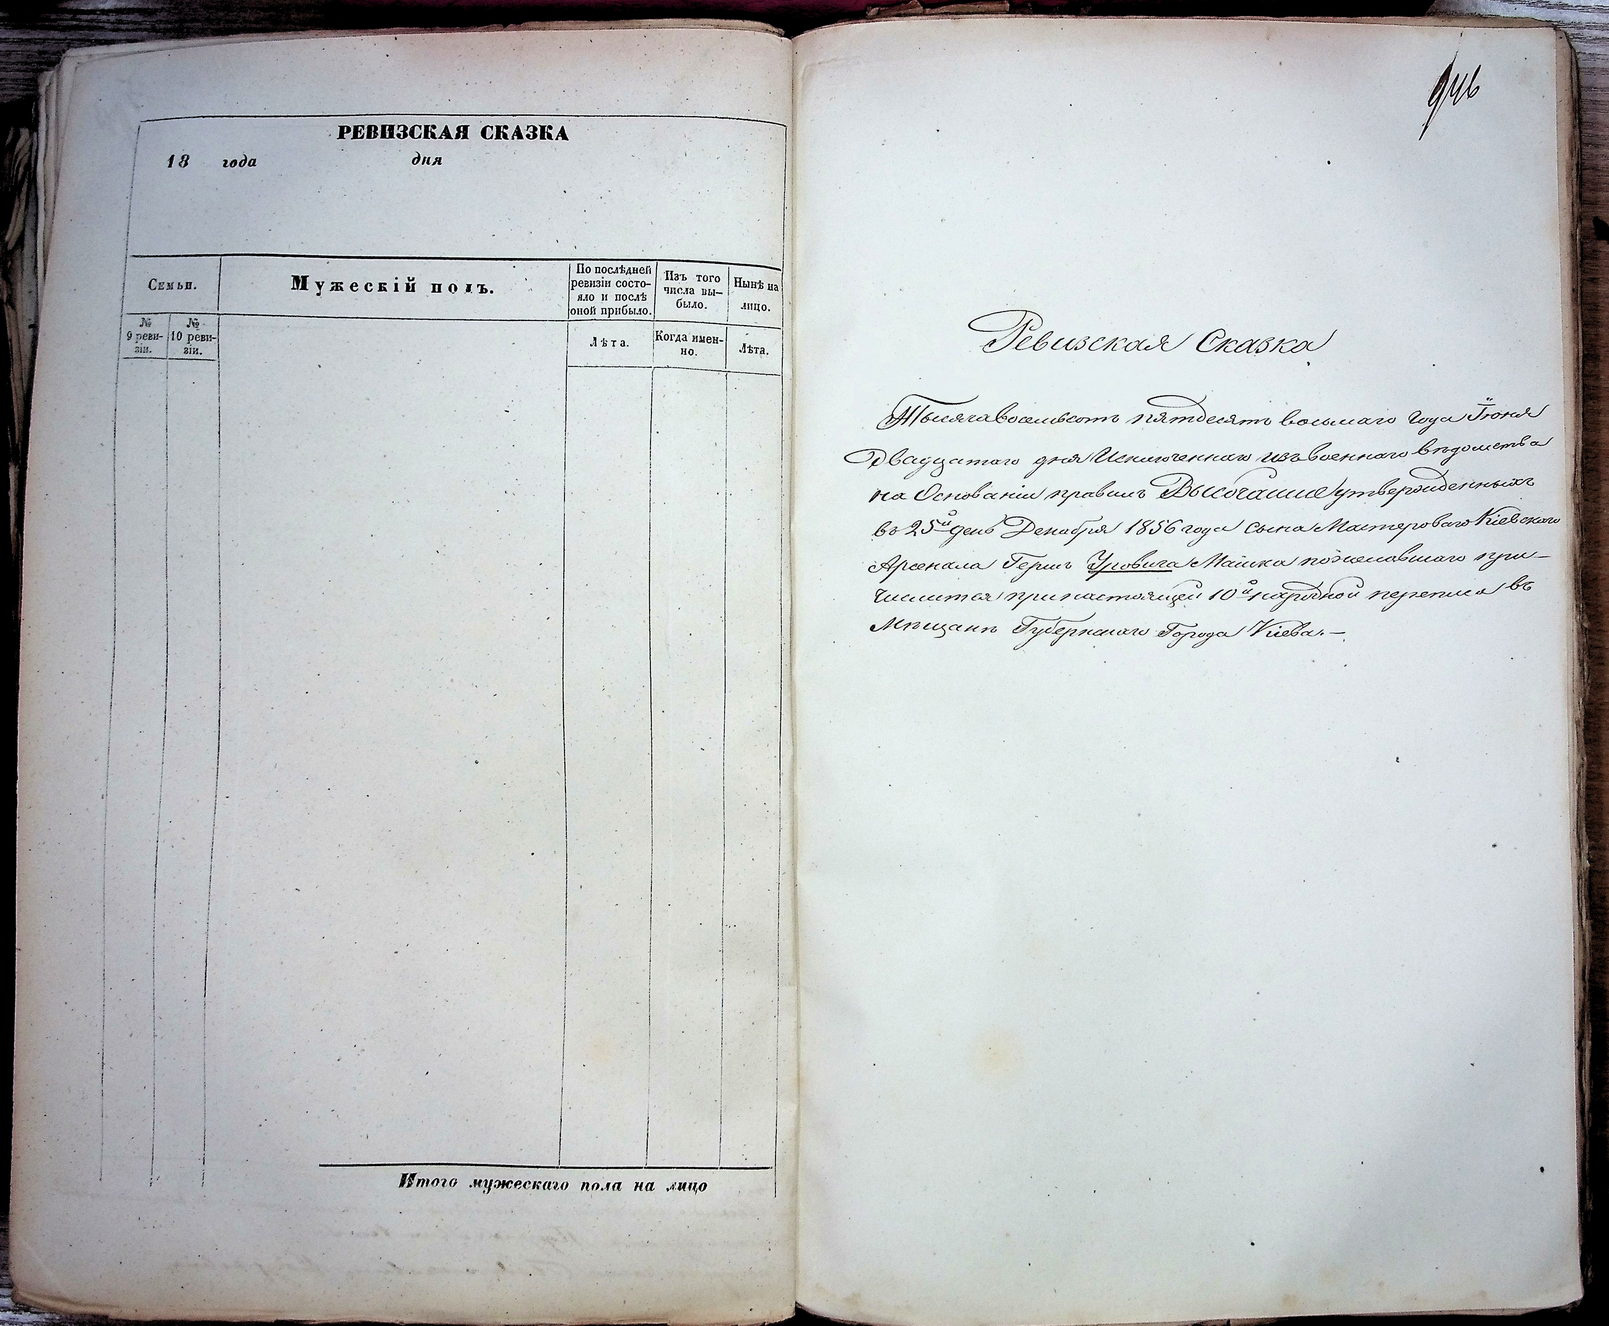 РЕВИЗСКАЯ СКАЗКА
18 года дня
Семьи.
Мужескій полъ.
По послѣдней
ревизіи состо-
яло и послѣ
оной прибыло.
Изъ того
числа вы-
было.
Нынѣ на
лицо.
№
9 реви-
зіи.
№
10 реви-
зіи.
Лѣта.
Когда имен-
но.
Лѣта.
Итого мужескаго пола на лицо
946
Ревизская Сказка
Тысяча восемьсотъ пятдесятъ восьмаго года Іюня
Двадцатого дня Исключеннаго изъ военнаго вѣдомства
на Основаніи правилъ Высочайше утвержденныхъ
въ 25й день Декабря 1856 года сына Мастероваго Кіевскаго
Арсенала Герша Уровича Майжа пожелавшаго при-
числится при настоящей 10й народной переписи въ
Мѣщане Губернскаго Города Кіева.—